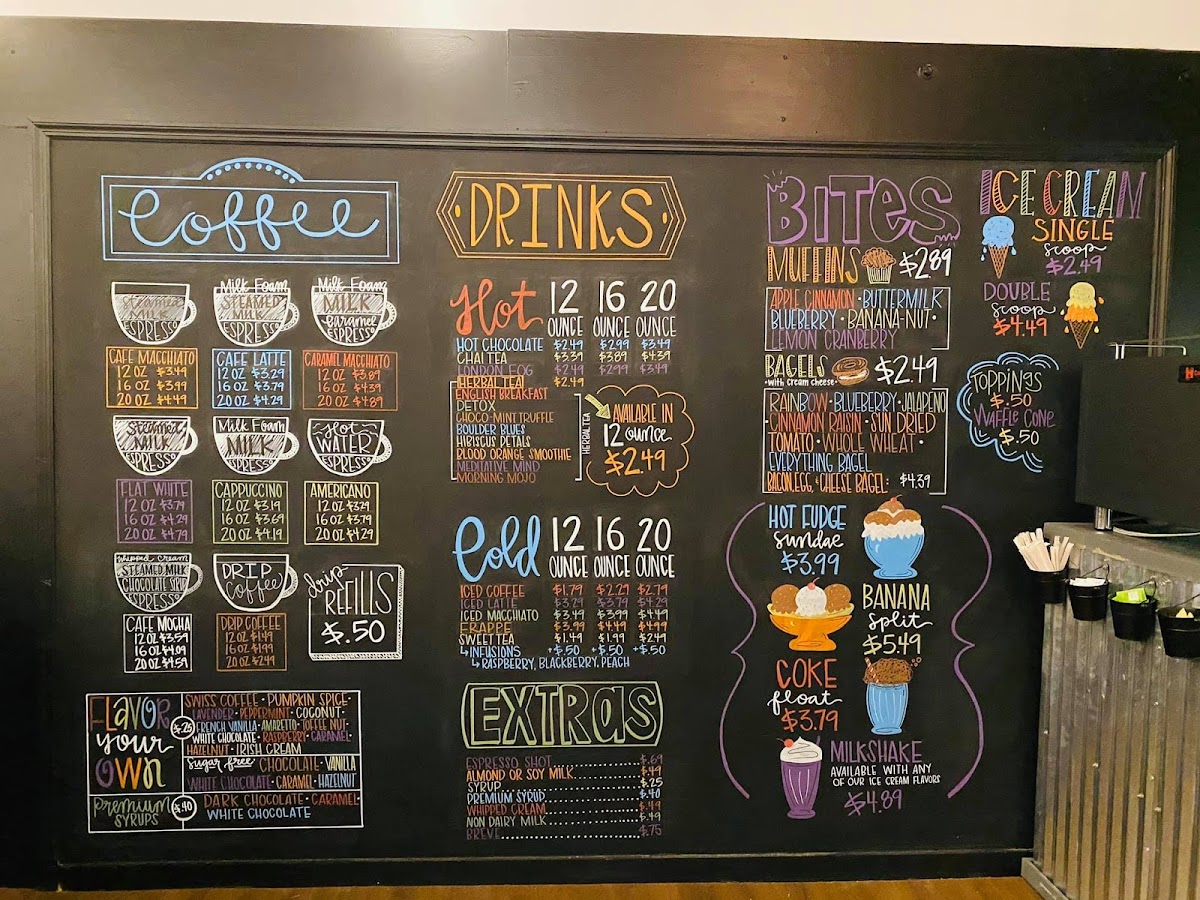 Coffee
STEAMED
MILK
ESPRESSO
CAFE MACCHIATO
12 OZ $3.49
16 OZ $3.99
20 OZ $4.49
Milk Foam
STEAMED
MILK
ESPRESSO
CAFE LATTE
12 OZ $3.29
16 OZ $3.79
20 OZ $4.29
Milk Foam
MILK
caramel
ESPRESSO
CARAMEL MACCHIATO
12 OZ $3.89
16 OZ $4.39
20 OZ $4.89
Steamed
MILK
ESPRESSO
FLAT WHITE
12 OZ $3.79
16 OZ $4.29
20 OZ $4.79
Milk Foam
MILK
ESPRESSO
CAPPUCCINO
12 OZ $3.19
16 OZ $3.69
20 OZ $4.19
Hot
WATER
ESPRESSO
AMERICANO
12 OZ $3.29
16 OZ $3.79
20 OZ $4.29
whipped cream
STEAMED MILK
CHOCOLATE SYRUP
ESPRESSO
CAFE MOCHA
12 OZ $3.59
16 OZ $4.09
20 OZ $4.59
DRIP
Coffee
DRIP COFFEE
12 OZ $1.49
16 OZ $1.99
20 OZ $2.49
drip
REFILLS
$.50
FLAVOR
your
OWN
$.25
SWISS COFFEE · PUMPKIN SPICE ·
LAVENDER · PEPPERMINT · COCONUT ·
FRENCH VANILLA · AMARETTO · TOFFEE NUT ·
WHITE CHOCOLATE · RASPBERRY · CARAMEL ·
HAZELNUT · IRISH CREAM
sugar free CHOCOLATE · VANILLA
WHITE CHOCOLATE · CARAMEL · HAZELNUT
premium
SYRUPS
$.40
DARK CHOCOLATE · CARAMEL ·
WHITE CHOCOLATE
DRINKS
Hot 12 OUNCE 16 OUNCE 20 OUNCE
HOT CHOCOLATE $2.49 $2.99 $3.49
CHAI TEA $3.39 $3.89 $4.39
LONDON FOG $2.49 $2.99 $3.49
HERBAL TEA $2.49
ENGLISH BREAKFAST
DETOX
CHOCO-MINT TRUFFLE
BOULDER BLUES
HIBISCUS PETALS
BLOOD ORANGE SMOOTHIE
MEDITATIVE MIND
MORNING MOJO
HERBAL TEA
AVAILABLE IN
12 ounce
$2.49
Cold 12 OUNCE 16 OUNCE 20 OUNCE
ICED COFFEE $1.79 $2.29 $2.79
ICED LATTE $3.29 $3.79 $4.29
ICED MACCHIATO $3.49 $3.99 $4.49
FRAPPE $3.99 $4.49 $4.99
SWEET TEA $1.49 $1.99 $2.49
INFUSIONS +$.50 +$.50 +$.50
RASPBERRY, BLACKBERRY, PEACH
EXTRAS
ESPRESSO SHOT $.69
ALMOND OR SOY MILK $.49
SYRUP $.25
PREMIUM SYRUP $.40
WHIPPED CREAM $.49
NON DAIRY MILK $.49
BREVE $.75
BITES
MUFFINS $2.89
APPLE CINNAMON · BUTTERMILK
BLUEBERRY · BANANA-NUT ·
LEMON CRANBERRY
BAGELS $2.49
· with CREAM CHEESE ·
RAINBOW · BLUEBERRY · JALAPENO
· CINNAMON RAISIN · SUN DRIED
TOMATO · WHOLE WHEAT ·
EVERYTHING BAGEL
BACON, EGG, & CHEESE BAGEL: $4.39
HOT FUDGE
sundae
$3.99
BANANA
split
$5.49
COKE
float
$3.79
MILKSHAKE
AVAILABLE WITH ANY
OF OUR ICE CREAM FLAVORS
$4.89
ICE CREAM
SINGLE
scoop
$2.49
DOUBLE
scoop
$4.49
TOPPINGS
$.50
WAFFLE CONE
$.50